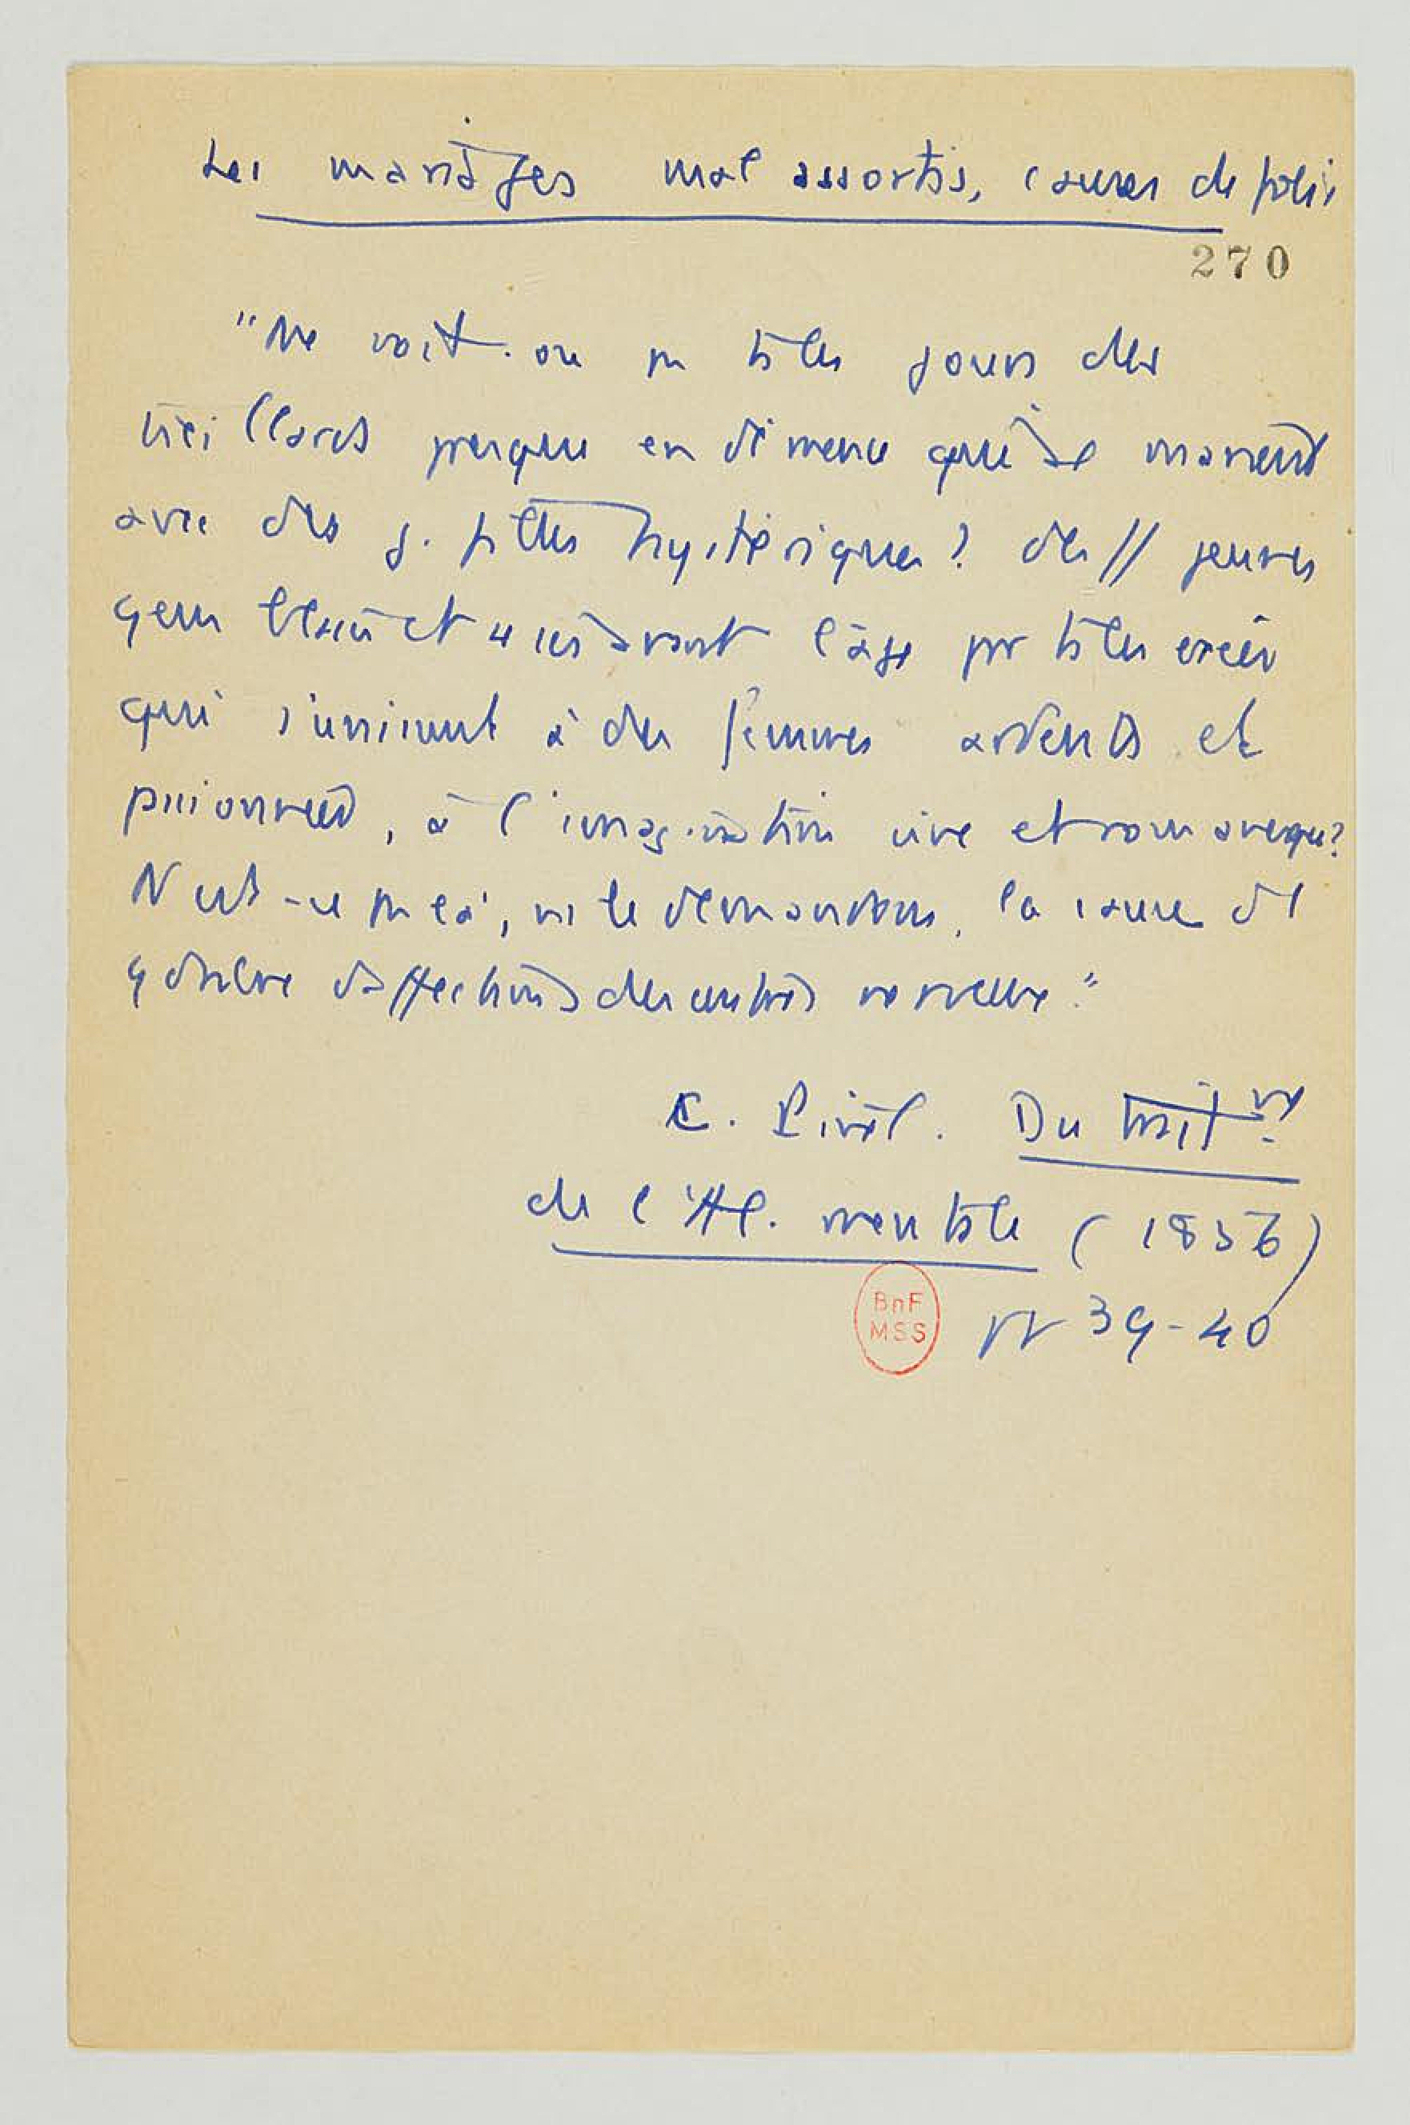 Les mariages mal assortis, causes de folie
270
"Ne voit-on pas ts les jours des
vieillards presque en démence qui se marient
avec des j. filles hystériques ? des // jeunes
gens blasés et usés avant l'âge par ts les excès
qui s'unissent à des femmes ardentes et
passionnées, à l'imagination vive et romanesque ?
N'est-ce pas là, ns le demandons, la cause de
q d'affections des centres nerveux."
C. Pinel. Du trait nt
de l'Al. mentale (1856)
pp 39-40
BnF
MSS